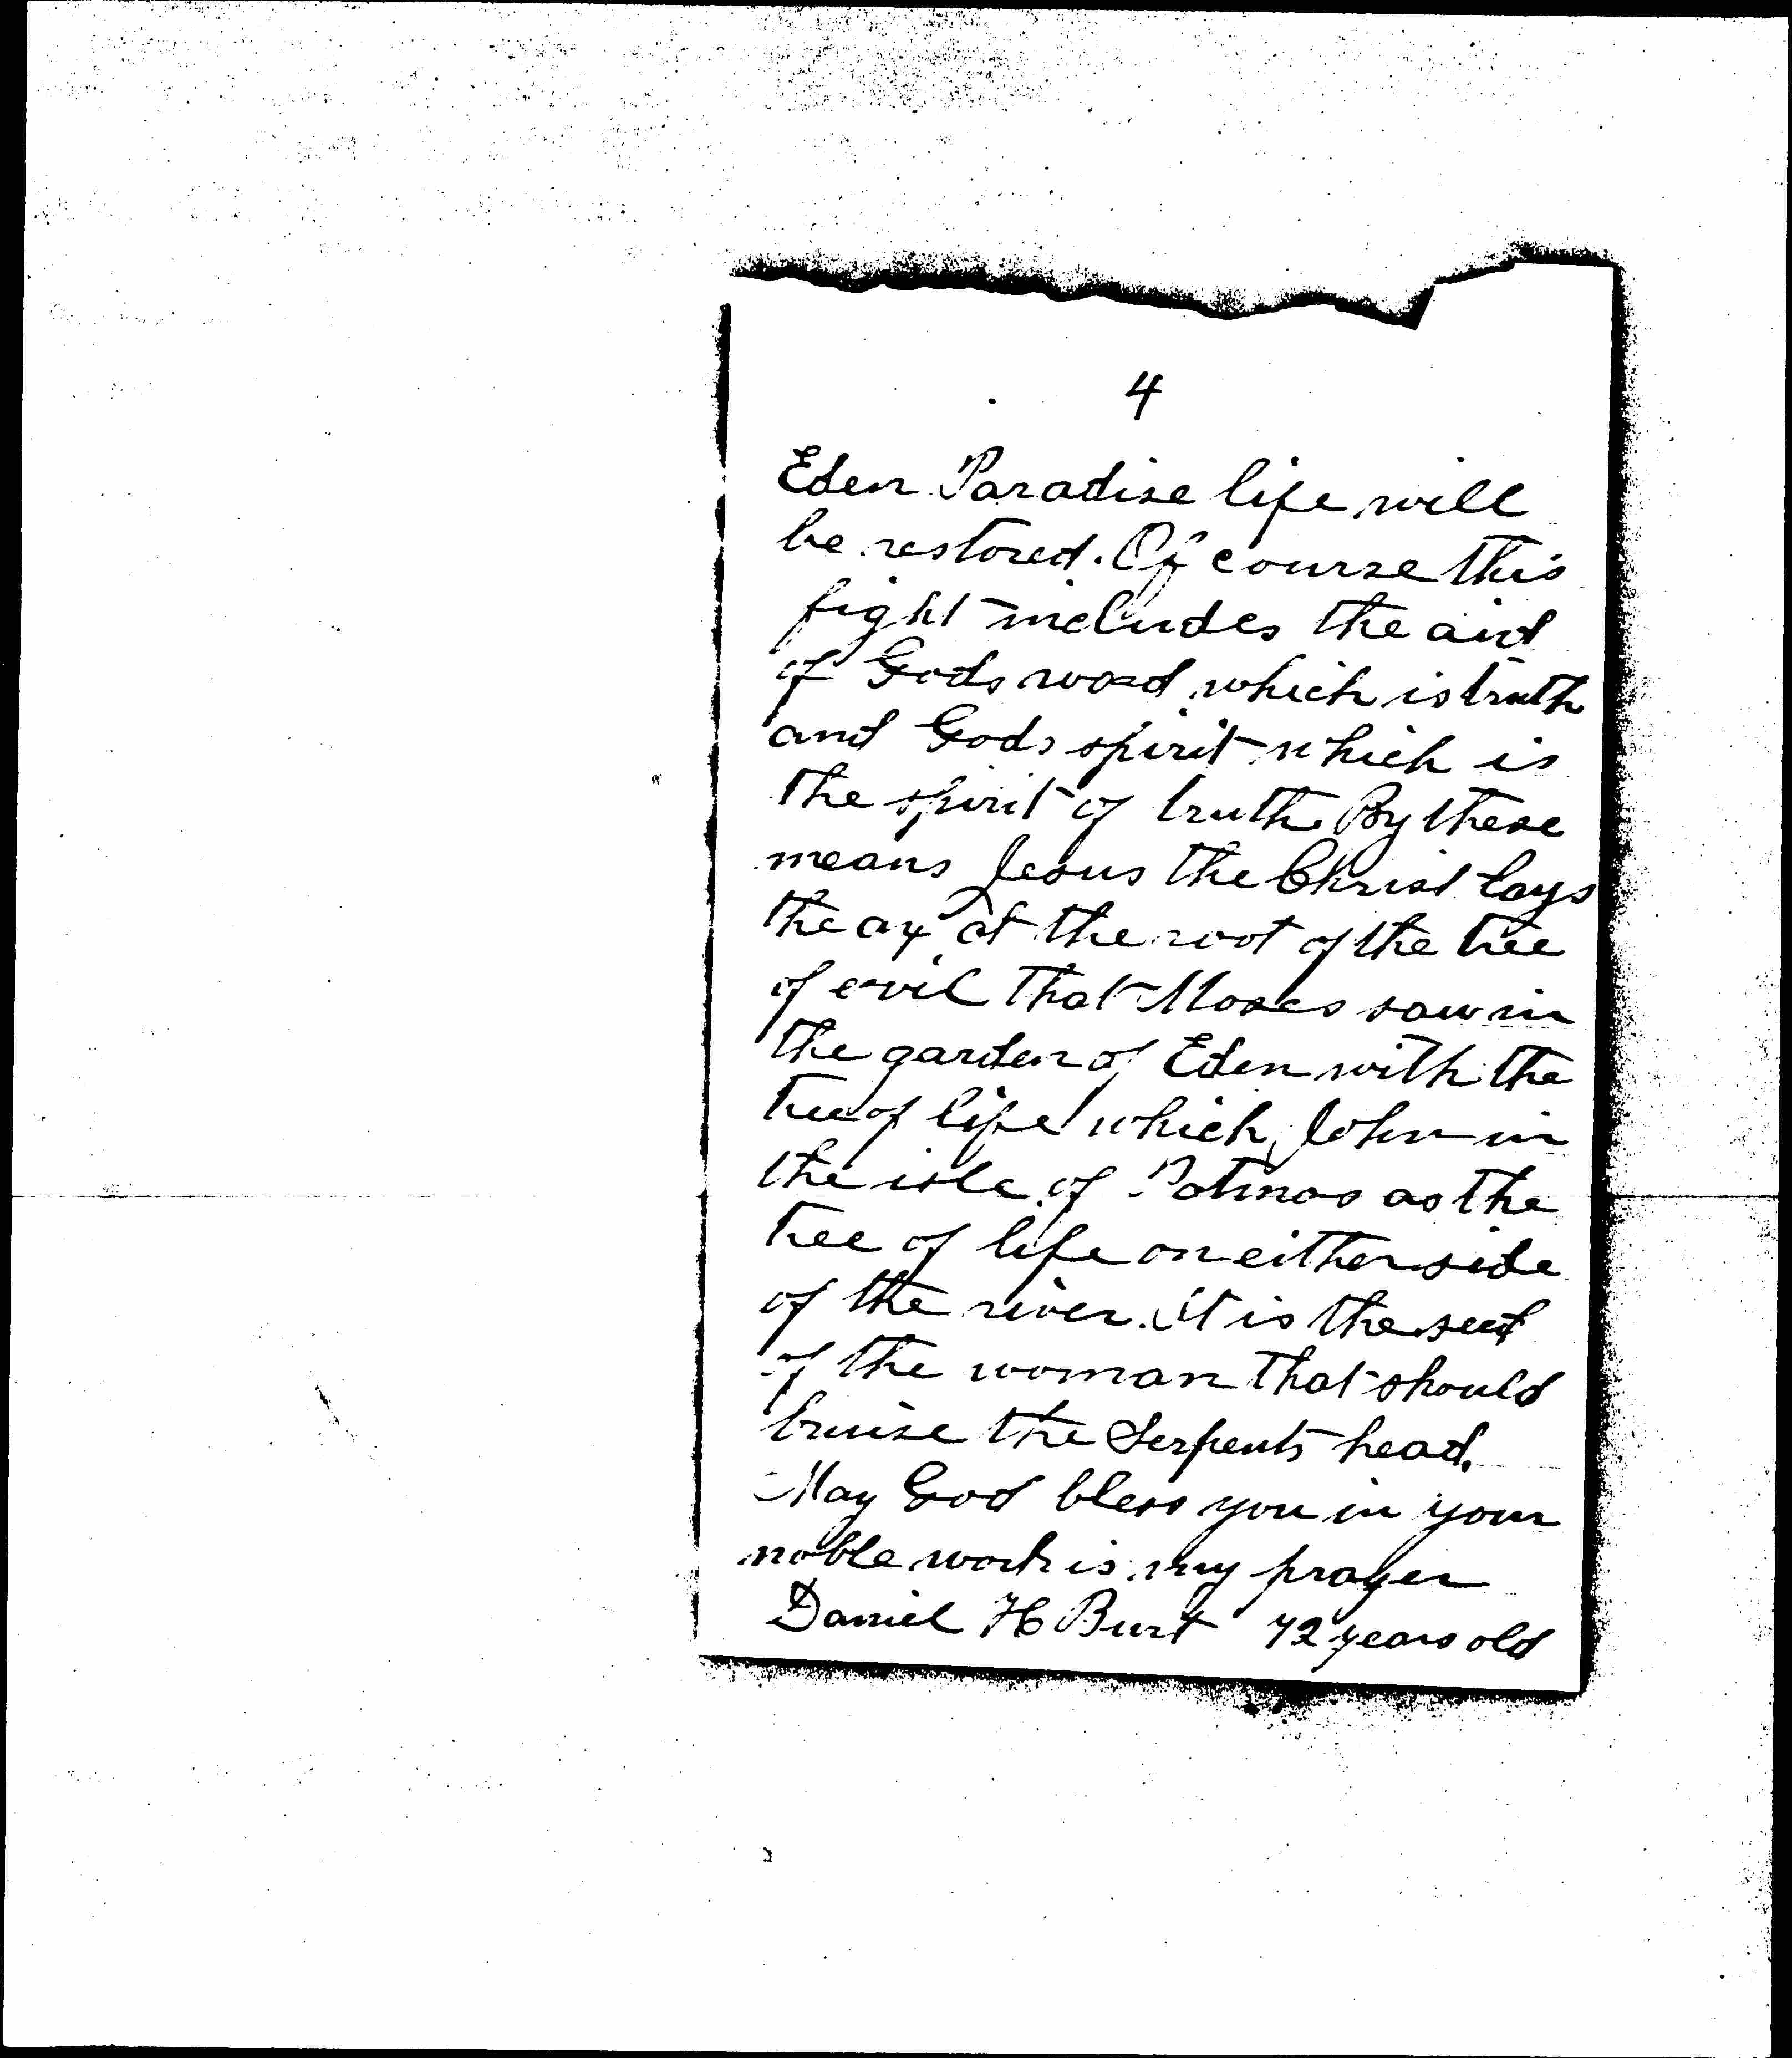 4
Eden Paradise life will
be restored. Of course this
fight includes the aid
of Gods word which is truth
and Gods spirit which is
the spirit of truth. By these
means Jesus the Christ lays
the ax at the root of the tree
of evil that Moses saw in
the garden of Eden with the
tree of life which John in
the isle of Patmos as the
tree of life on either side
of the river. It is the seed
of the woman that should
bruise the Serpents head.
May God bless you in your
noble work is my prayer
Daniel H Burt 72 years old